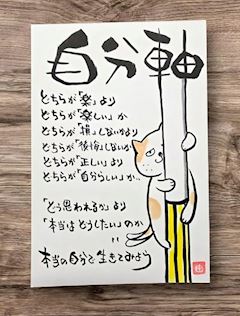 自分軸
どちらが「楽」より
どちらが「楽しい」か
どちらが「損」しないかより
どちらが「後悔」しないか
どちらが「正しい」より
どちらが「自分らしい」か…
「どう思われるか」より
「本当はどうしたい」のか
本当の自分で生きてみよう